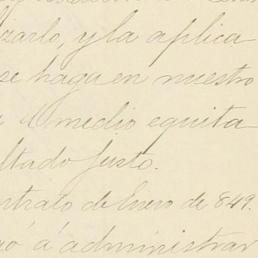 zarlo, y la aplica
se haga en nuestro
el medio equita
ltado justo.
ntrato de Enero de 849.
ó á administrar